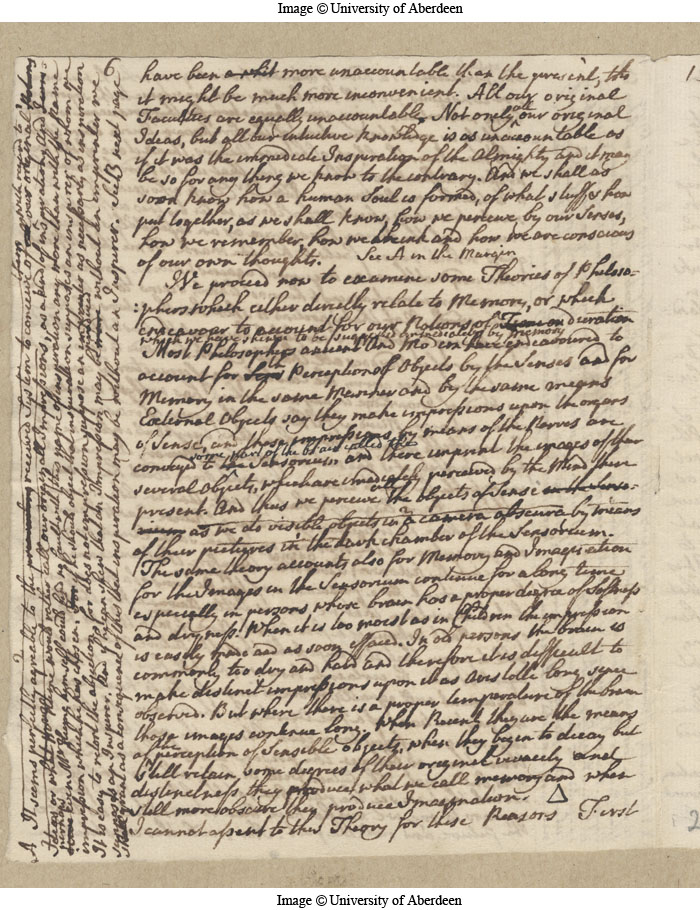 Image © University of Aberdeen
6
have been a whit more unaccountable than the present, tho
it might be much more inconvenient. All our original
Faculties are equally unaccountable. Not only all our original
Ideas, but all our intuitive knowledge is as unaccountable as
if it was the immediate Inspiration of the Almighty and it may
be so for any thing we know to the contrary. And we shall as
soon know how a human Soul is formed, of what stuffs how
put together, as we shall know, how we perceive by our Senses,
how we remember, how we think and how we are conscious
of our own thoughts. See A in the Margin
We proceed now to examine some Theories of Philoso-
:phers which either directly relate to Memory, or which
endeavour to account for our Notions of duration
which we have shewn to be suggested immediately by memory
Most Philosophers ancient and modern have endeavoured to
account for the Perception of Objects by the Senses and for
Memory in the same Manner and by the same means
External Objects say they make impressions upon the organs
of Sense, and these impressions by means of the Nerves are
some part of the brain called the
conveyed to the Sensorium and there imprint the images of their
several Objects, which are immediately perceived by the Mind there
present. And thus we perceive the objects of Sense
as we do visible objects in a camera obscura by means
of their pictures in the dark chamber of the Sensorium.
The same theory accounts also for Memory and Imagination
for the Images in the Sensorium continue for a long time
especially in persons whose brain has a proper degree of Softness
and dryness. When it is too moist as in Children the impression
is easily made and as soon effaced. In old persons the brain is
commonly too dry and hard and therefore it is difficult to
make distinct impressions upon it as Aristotle long since
observed. But where there is a proper temperature of the brain
those images continue long. When Recent they are the means
of the perception of Sensible objects, when they begin to decay but
still retain, some degrees of their original vivacity and
distinctness they produce what we call memory and when
still more obscure they produce Imagination. Δ
I cannot assent to this Theory for these Reasons First
A It seems perfectly agreable to the received System to conceive of our original
Ideas or
impression which he has chosen.
It is easy to retort the objection for does not every impression suppose an impresser as necessarily, as inspiration
supposes an Inspirer. And if he can shew that an Impression may be without an impresser we
1
2
Image © University of Aberdeen